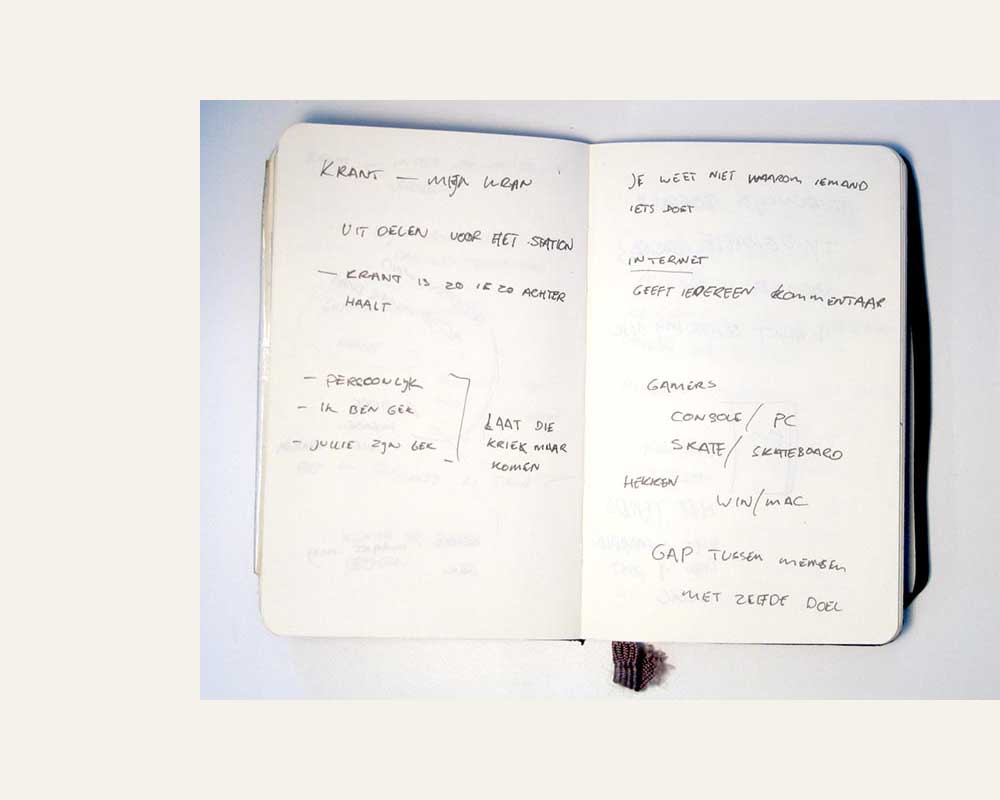 KRANT — MIJN KRAN
UIT DELEN VOOR HET STATION
— KRANT IS ZO IE ZO ACHTER
HAALT
— PERSOONLIJK
— IK BEN GEK
— JULLIE ZIJN GEK
LAAT DIE
KRIEK MAAR
KOMEN
JE WEET NIET WAAROM IEMAND
IETS DOET
INTERNET
GEEFT IEDEREEN KOMMENTAAR
GAMERS
CONSOLE / PC
SKATE / SKATEBOARD
HEKKEN
WIN/MAC
GAP TUSSEN MENSEN
MET ZELFDE DOEL